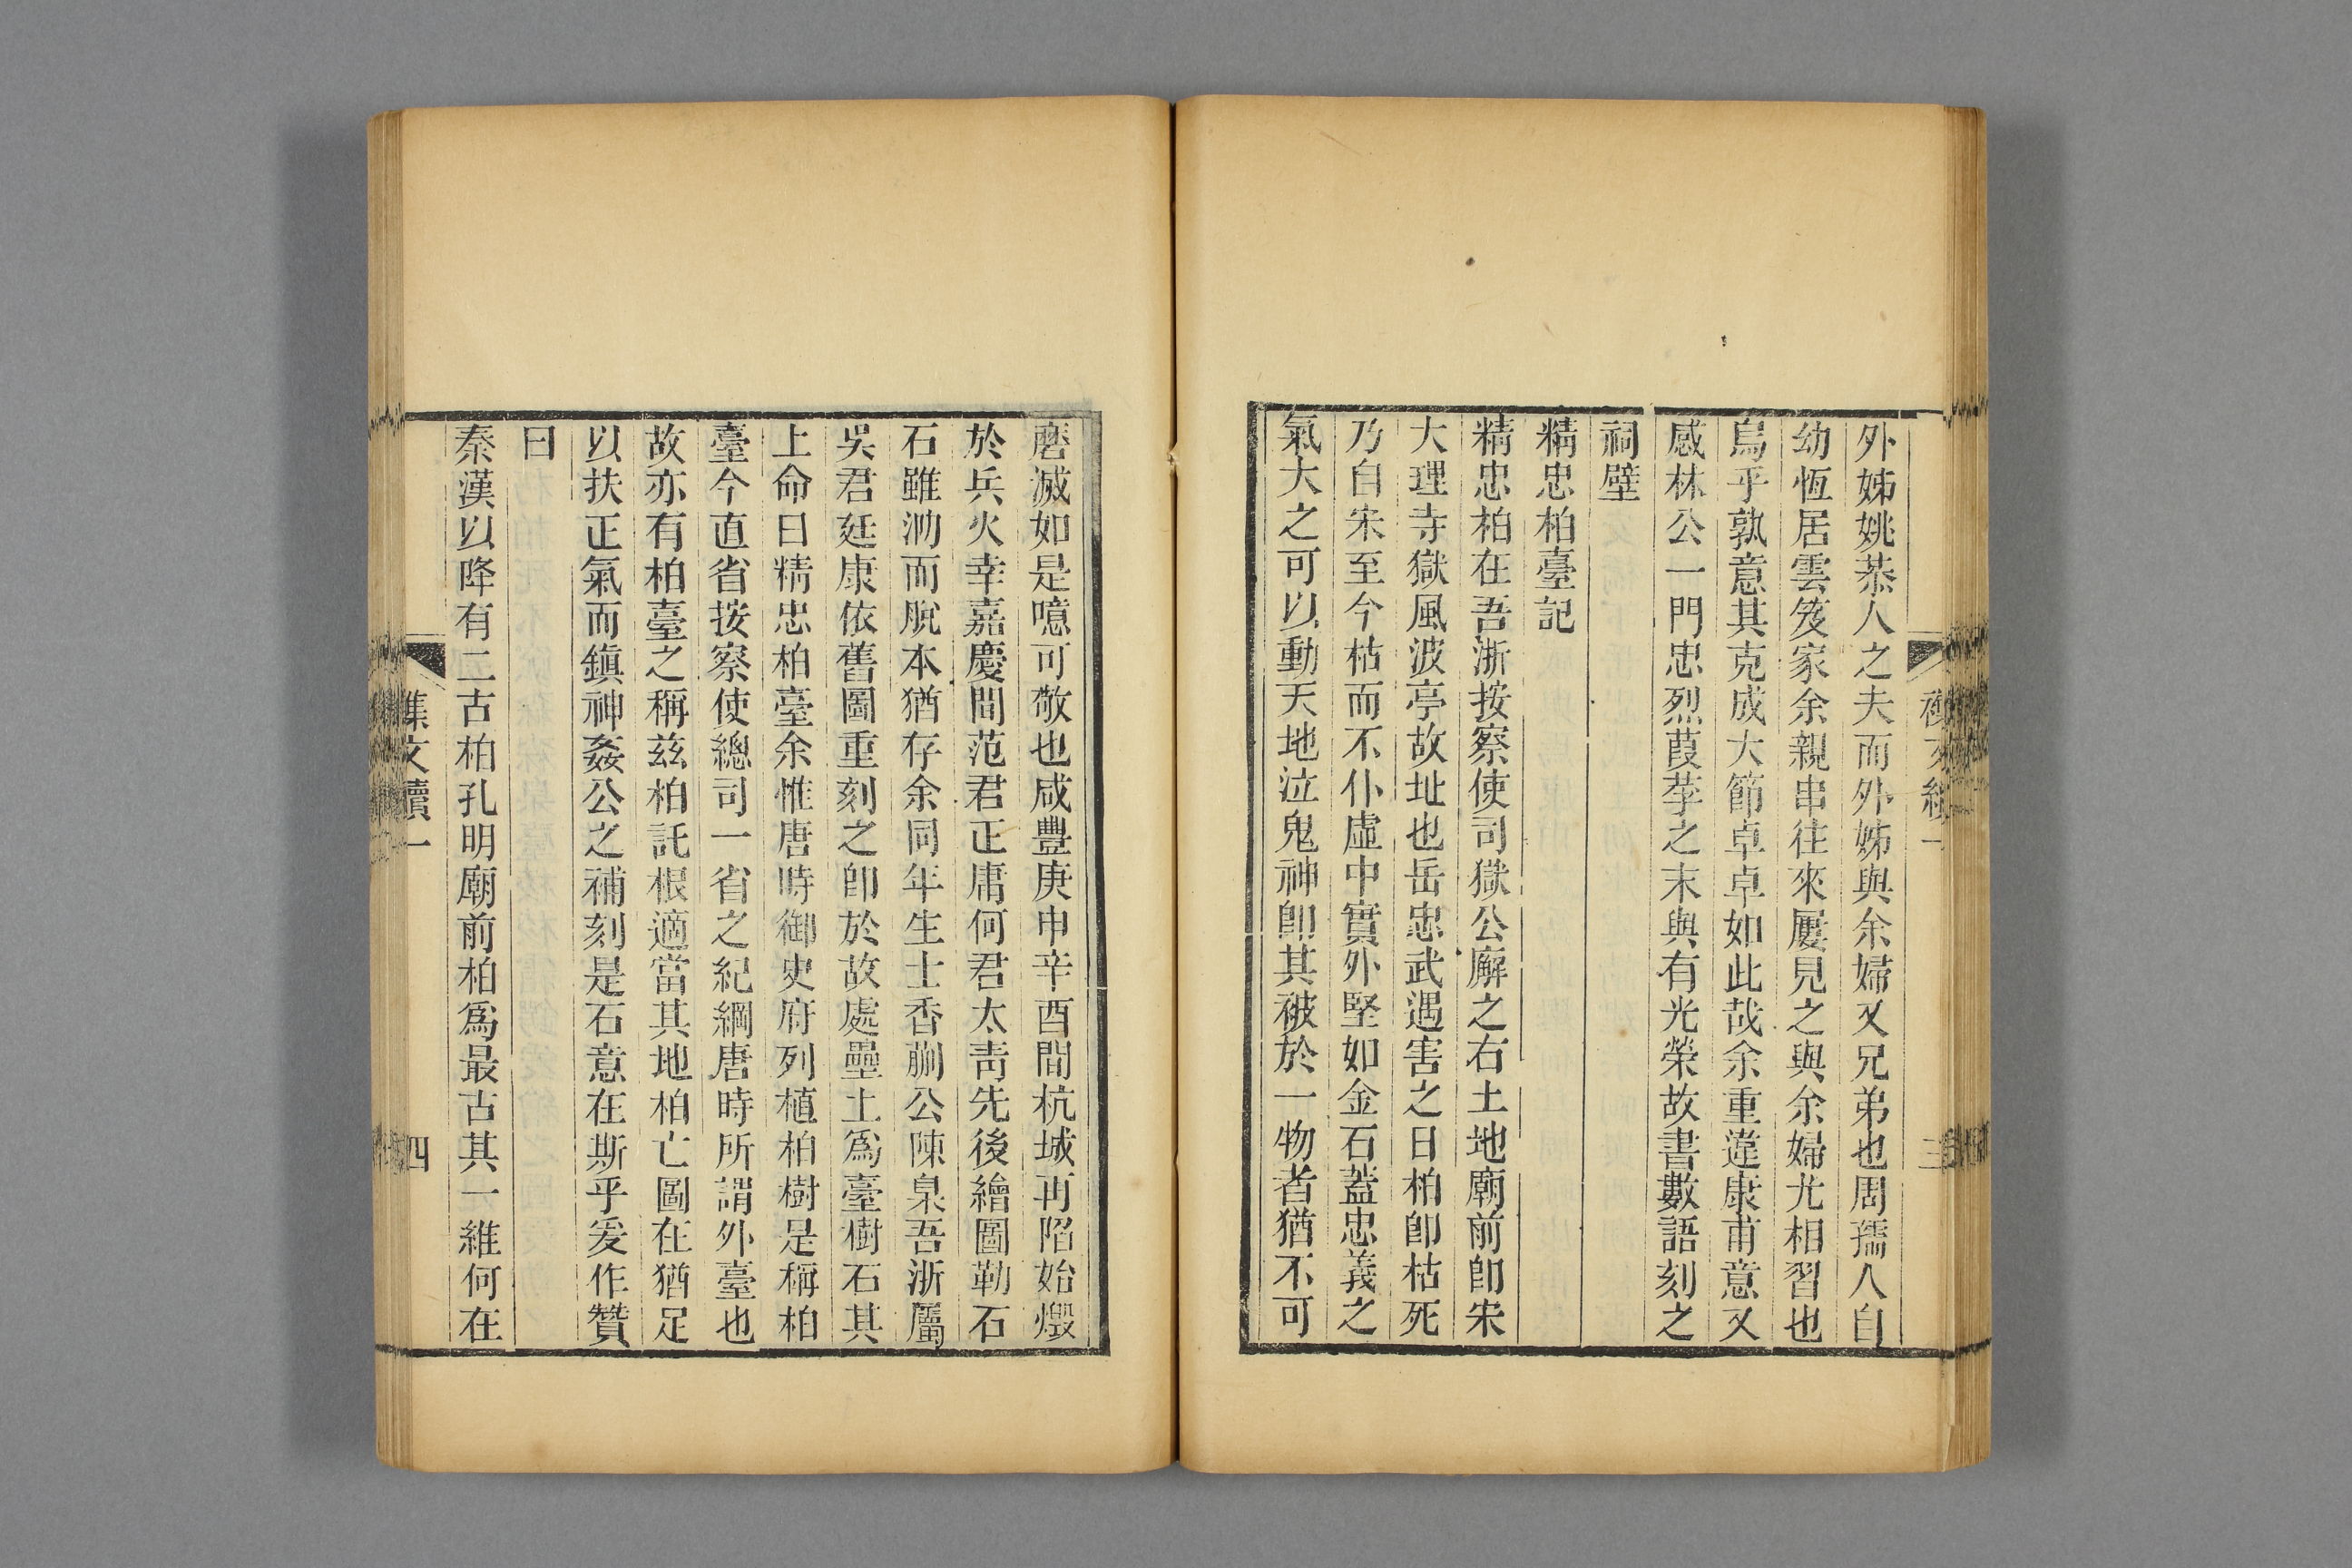 外姊姚恭人之夫而外姊與余婦又兄弟也周孺人自
幼恆居雲笈家余親串往來屢見之與余婦尤相習也
烏乎孰意其克成大節卓卓如此哉余重違康甫意又
感林公一門忠烈葭莩之末與有光榮故書數語刻之
祠壁
精忠柏臺記
精忠柏在吾浙按察使司獄公廨之右土地廟前卽宋
大理寺獄風波亭故址也岳忠武遇害之日柏卽枯死
乃自宋至今枯而不仆虛中實外堅如金石蓋忠義之
氣大之可以動天地泣鬼神卽其被於一物者猶不可
磨滅如是噫可敬也咸豐庚申辛酉間杭城再陷始燬
於兵火幸嘉慶間范君正庸何君太靑先後繪圖勒石
石雖泐而脫本猶存余同年生士香蒯公陳臬吾浙屬
吳君廷康依舊圖重刻之卽於故處壘土爲臺樹石其
上命曰精忠柏臺余惟唐時御史府列植柏樹是稱柏
臺今直省按察使總司一省之紀綱唐時所謂外臺也
故亦有柏臺之稱茲柏託根適當其地柏亡圖在猶足
以扶正氣而鎮神姦公之補刻是石意在斯乎爰作贊
曰
秦漢以降有二古柏孔明廟前柏爲最古其一維何在
集文續一
四